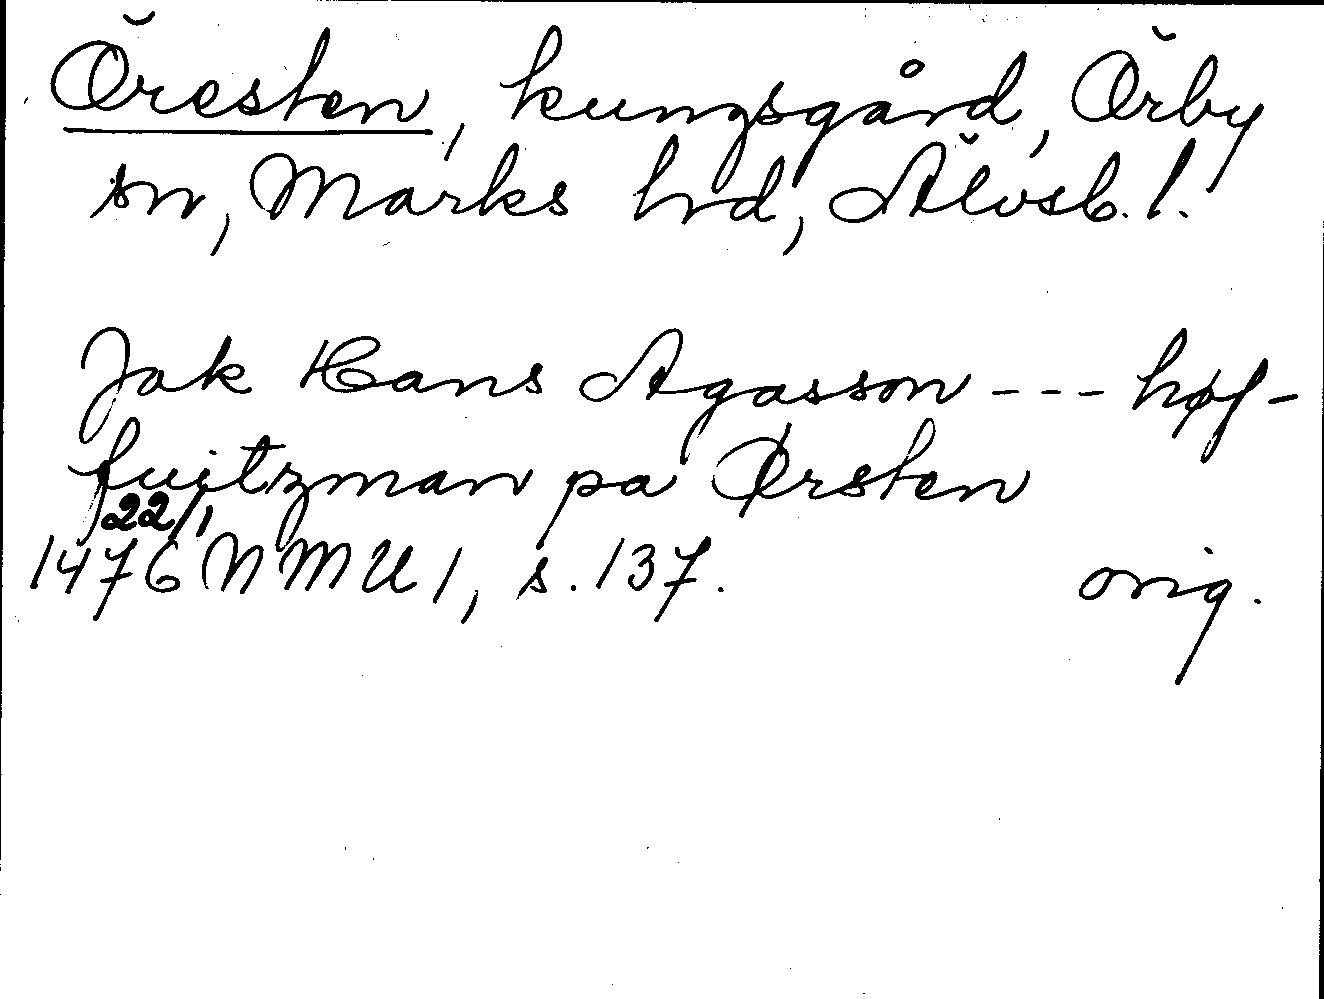 Öresten, kungsgård, Örby
sn, Marks hd, Älvsb. l.
Jak Hans Agasson --- høf-
fuitzman pa Ørsten
22/1
1476 NMU 1, s. 137. orig.